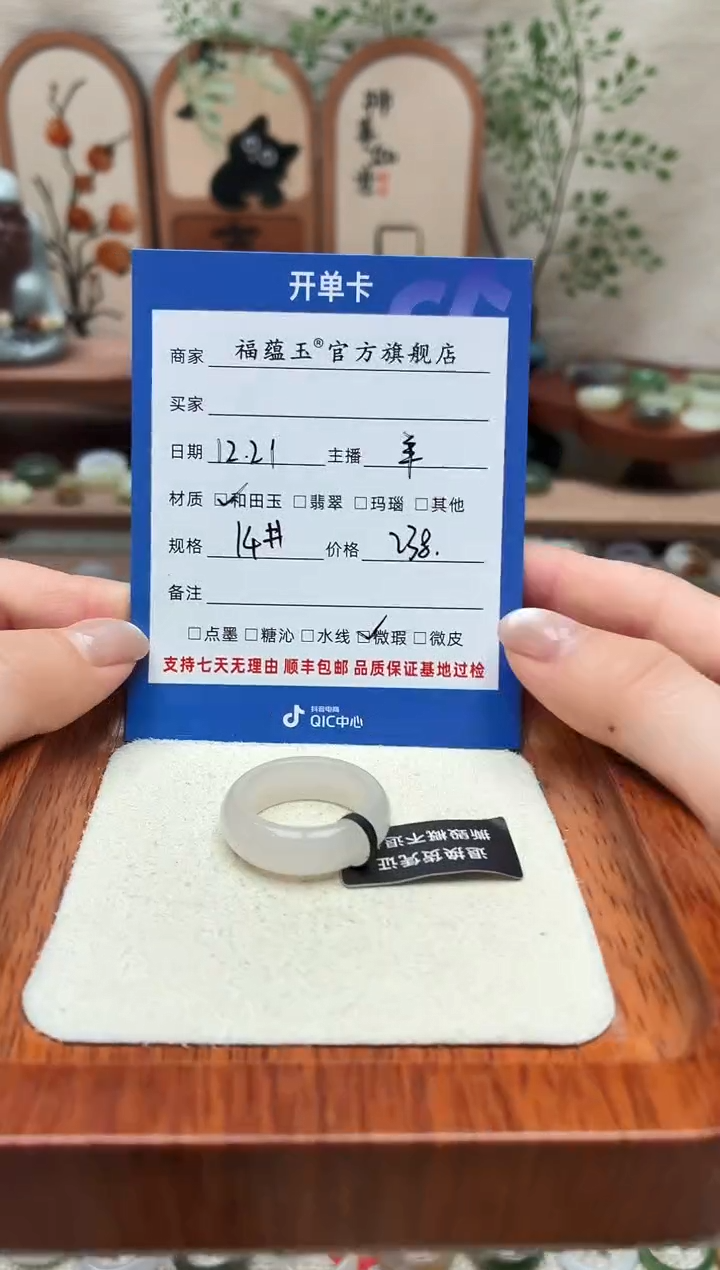 开单卡
商家 福蕴玉®官方旗舰店
买家
日期 12.21 主播 羊
材质 ☑和田玉 □翡翠 □玛瑙 □其他
规格 14# 价格 238.
备注
□点墨 □糖沁 □水线 ☑微瑕 □微皮
支持七天无理由 顺丰包邮 品质保证基地过检
抖音电商
QIC中心
退换货凭证
撕毁概不退